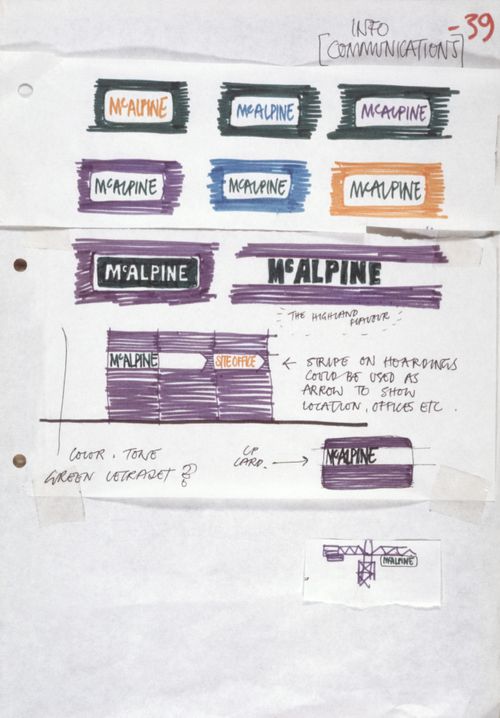 INFO -39
[COMMUNICATIONS]
McALPINE McALPINE McALPINE
McALPINE McALPINE McALPINE
McALPINE McALPINE
THE HIGHLAND FLAVOUR
McALPINE SITE OFFICE
← STRIPE ON HOARDINGS
COULD BE USED AS
ARROW TO SHOW
LOCATION, OFFICES ETC.
COLOR. TONE
GREEN LETRASET ?
CP
CARD. → McALPINE
McALPINE